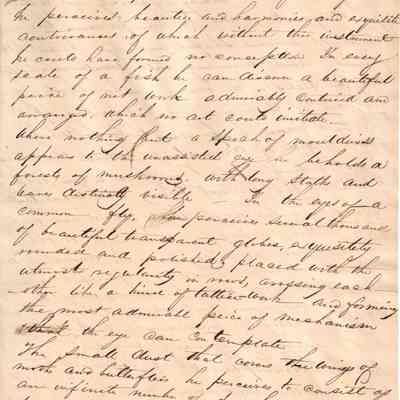 he perceives beauties and harmonies, and exquisite
contrivances of which without this instrument
he could have formed no conception In every
scale of a fish he can discern a beautiful
peice of net work admirably contrived and
arranged which no art could imitate
Where nothing but a speck of mouldiness
appears to the unassisted eye he beholds a
forests of mushrooms with long stalks and
leaves distinctly visible — In the eyes of a
common fly, perceives several thousand
of beautiful transparent globes, exquisitely
rounded and polished, placed with the
utmost regularity in rows, crossing each
other like a kind of lattice work and forming
the most admirable peice of mechanism
the eye can contemplate
The small dust that covers the wings of
moths and butterflies he perceives to consist of
an infinite number of